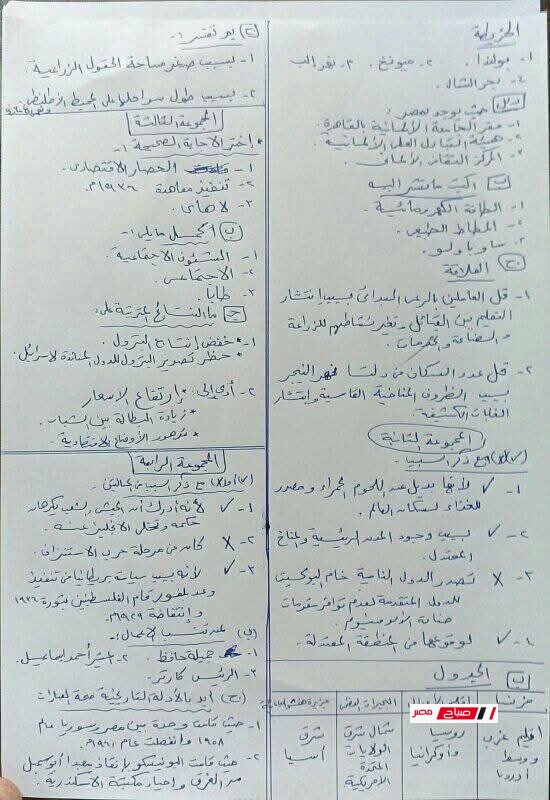 الخريطة
١- بولندا. ٢- ميونخ. ٣- نهر الب
٤- بحر الشمال.
حيث يوجد بمصر:
١- مقر الجامعة الألمانية بالقاهرة
٢- هيئة التبادل العلمى الألمانية.
٣- المركز الثقافى الألمانى.
ب) اكتب ما تشير اليه
١- الطاقة الكهرومائية
٢- المطاط الطبيعى.
٣- ساو باولو.
ج) العلاقة
١- قل العاملين بالرعى البدائى بسبب انتشار
التعليم بين القبائل وتغير نشاطهم للزراعة
والصناعة والخدمات.
٢- قل عدد السكان من دلتا نهر النيجر
بسبب الظروف المناخية القاسية وانتشار
الغابات الكثيفة.
المجموعة الثانية
مع ذكر السبب
١- ✓ لأنها بديل عن اللحوم الحمراء ومصدر
للغذاء لسكان العالم.
٢- ✓ بسبب وجود المدن الرئيسية والمناخ
المعتدل.
٣- X تصدر الدول النامية خام البوكسيت
للدول المتقدمة لعدم توافر مقومات
صناعة الألومنيوم
✓ لوقوعها فى المنطقة المعتدلة.
ب) الجدول
فرنسا
البحيرات العظمى
اقليم غرب ووسط أوروبا
روسيا وأوكرانيا
شمال شرق الولايات المتحدة الأمريكية
شرق آسيا
صباح مصر
ج) بم تفسر:
١- بسبب صغر مساحة الحقول الزراعية
٢- بسبب طول سواحلها على المحيط الأطلنطى
المجموعة الثالثة
اختر الاجابة الصحيحة:
١- الحصار الاقتصادى.
٢- تنفيذ معاهدة ١٩٣٦م.
٣- لاهاى.
ب) أكمل ما يلى:
١- الشئون الاجتماعية.
٢- الاجتماعى.
٣- طابا.
ج) ما النتائج المترتبة على:
١- * خفض إنتاج البترول.
* حظر تصدير البترول للدول المساندة لاسرائيل.
٢- أدى إلى: * ارتفاع الاسعار
* زيادة البطالة بين الشباب.
* تدهور الأوضاع الاقتصادية.
المجموعة الرابعة
مع ذكر السبب فى الحالتين.
١- ✓ لأنه أدرك أن الجيش والشعب يكرهان
حكمه وتخلى الانجليز عنه.
٢- X كان من مرحلة حرب الاستنزاف.
٣- ✓ لأنه بسبب سياسة بريطانيا فى تنفيذ
وعد بلفور قام الفلسطينين بثورة ١٩٣٦
وانتفاضة ١٩٢٩م.
(ب) لمن تنسب الأعمال:
١- جميلة حافظ. ٢- المشير أحمد إسماعيل.
٣- الرئيس كارتر.
(ج) أيد بالأدلة التاريخية صحة العبارات
١- حيث قامت وحدة بين مصر وسوريا عام
١٩٥٨ وانفصلت عام ١٩٦١م.
٢- حيث قامت اليونسكو بإنقاذ معبد أبو سمبل
من الغرق وإحياء مكتبة الاسكندرية.